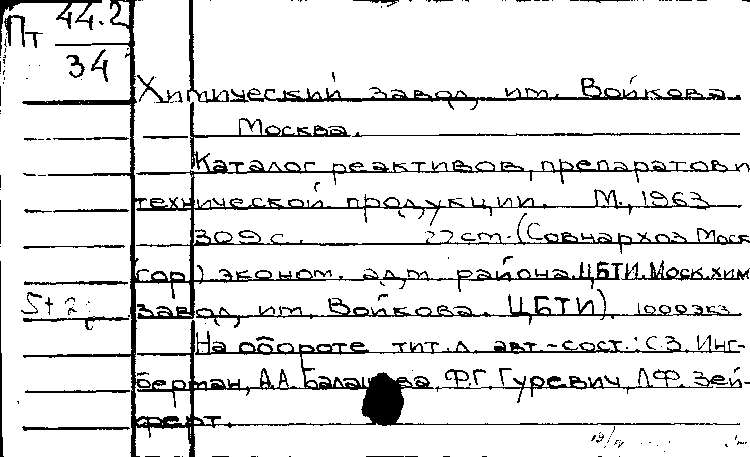 Пт 44.2
34
Химический завод им. Войкова.
Москва.
Каталог реактивов, препаратов и
технической продукции. М., 1963
309 с. 22 cm. (Совнархоз Моск
гор) эконом. адм района. ЦБТИ. Моск. хим
завод им. Войкова. ЦБТИ). 1000 экз
На обороте тит. л. авт.-сост.: С.З. Инг-
берман, А.А. Балашова, Ф.Г. Гуревич, Л.Ф. Зей-
ферт.